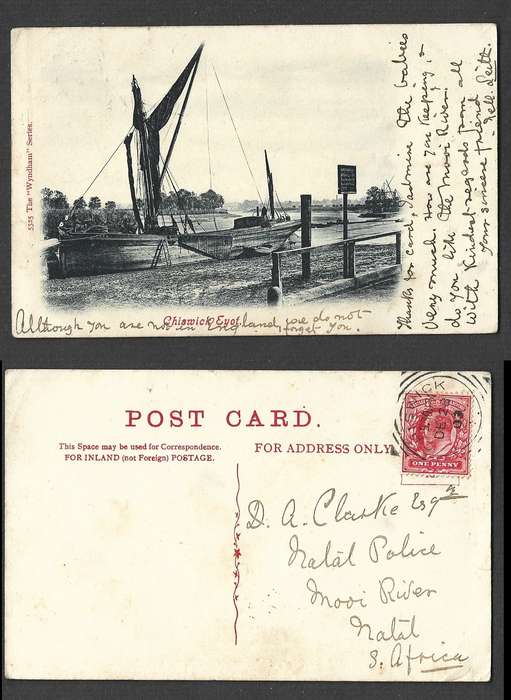 5325 The "Wyndham" Series.
Chiswick Eyot.
Although you are not in England, we do not
forget you.
Thanks for card, I admire the babies
very much. How are you keeping, &
do you like the Mooi River.
With kindest regards from all
your sincere friend
Nell.
POST CARD.
This Space may be used for Correspondence.
FOR INLAND (not Foreign) POSTAGE.
FOR ADDRESS ONLY
ONE PENNY
D. A. Clarke Esqre
Natal Police
Mooi River
Natal
S. Africa